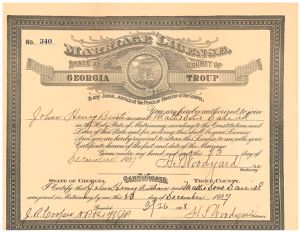 No. 340
MARRIAGE LICENSE.
STATE OF COUNTY OF
GEORGIA TROUP
To any Judge, Justice of the Peace or Minister of the Gospel:
You are hereby authorized to join
John Henry and Mattie Dene Daniel
in the Holy State of Matrimony, according to the Constitution and
Laws of this State and for so doing this shall be your License
And you are hereby required to return this License to me with your
Certificate hereon of the fact and date of the Marriage
Given under my hand and seal this day of
December 1917 Woodyard
Ordinary
Certificate
STATE OF GEORGIA, TROUP COUNTY.
I Certify that John Henry and Mattie Dene Daniel
were joined in Matrimony by me this day of December 1917
Recorded
J. R. Cooper N.P. Woodyard